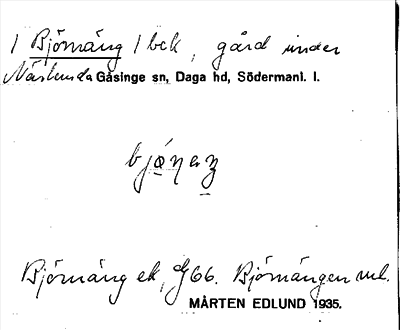 / Björnäng / bek, gård under
Gåsinge sn, Daga hd, Södermanl. l.
Björnäng ek, G66. Björnängen
MÅRTEN EDLUND 1935.